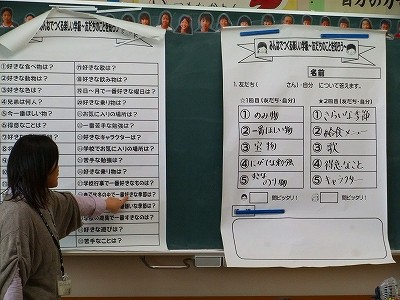 みんなでつくる楽しい学級～友だちのことを知ろう～
①好きな食べ物は?
②好きな動物は?
③好きな色は?
④兄弟は何人?
⑤今一番ほしい物?
⑥得意なことは?
⑪好きな歌は?
⑫好きな飲み物は?
⑬日～月で一番好きな曜日は?
⑭好きな乗り物は?
⑮お気に入りの場所は?
⑯一番苦手な勉強は?
好きなキャラクターは?
学校でお気に入りの場所は?
苦手な勉強は?
好きな乗り物は?
学校行事で一番好きなものは?
春夏秋冬の中で一番好きな季節は?
一番嫌いな季節は?
学校の遊具で一番すきなのは?
好きな遊びは?
苦手なことは?
みんなでつくる楽しい学級～友だちのことを知ろう～
名前
1.友だち( さん)・自分 について答えます。
☆1回目(友だち・自分)
①のみ物
②一番ほしい物
③宝物
④にがてな勉強
⑤すきなのり物
問ピッタリ!
☆2回目(友だち・自分)
①きらいな季節
②給食メニュー
③歌
④得意なこと
⑤キャラクター
問ピッタリ!